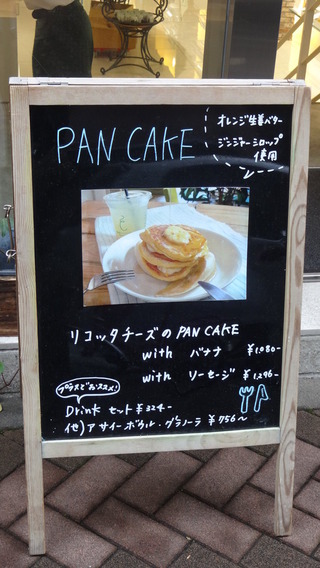 PAN CAKE
オレンジ生姜バター
ジンジャーシロップ
使用
リコッタチーズの PAN CAKE
with バナナ ¥1,080-
with ソーセージ ¥1,296-
プラスでおススメ!
Drink セット ¥324-
(他)アサイーボウル・グラノーラ ¥756〜